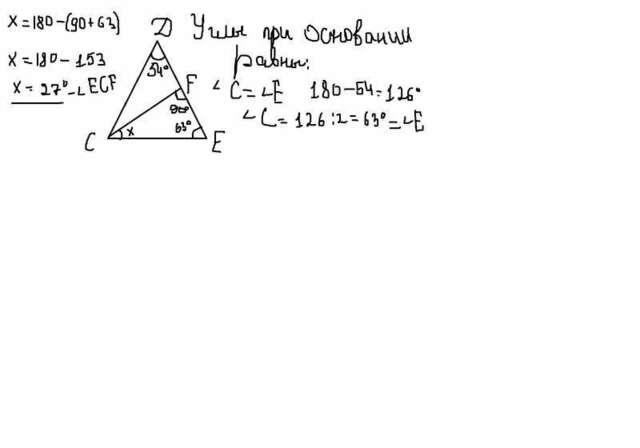 x = 180 - (90 + 63)
x = 180 - 153
x = 27° - ∠ECF
D
54°
F
90°
63°
x
C
E
Углы при основании
равны.
∠C = ∠E 180 - 54 = 126°
∠C = 126 : 2 = 63° = ∠E